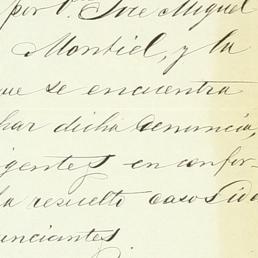 por D. José Miguel
Montiel, y la
que se encuentra
har dicha denuncia,
igentes en confor-
la resuelto casos
unciantes.